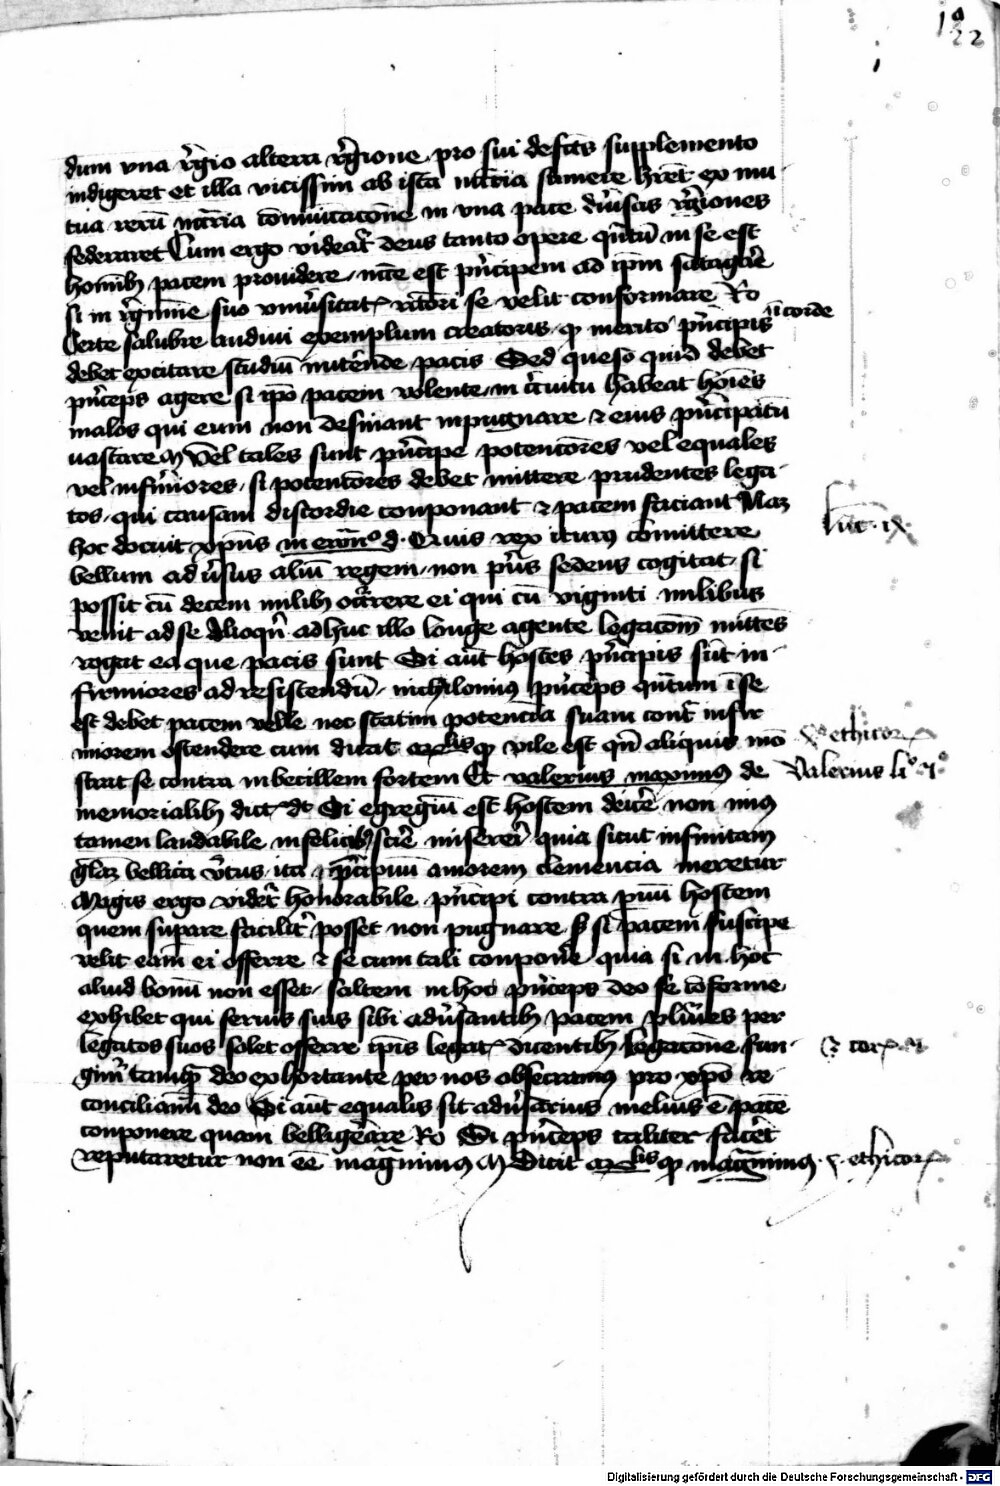 122
dum vna regio altera regione pro sui defectus supplemento
indigeret et illa vicissim ab ista materia sumere haberet ex mu-
tua rerum materia communicacione in vna pace diuersas regiones
federaret Cum ergo videatur deus tanto opere quantum in se est
hominibus pacem prouidere necesse est principem ad ipsum satagere
si in regimine suo vniuersitatis rectori se velit conformare Ro
Certe salubre audiui exemplum creatoris quod merito principis
in corde
debet excitare studium intendende pacis Sed queso quid debet
princeps agere si ipso pacem volente in circuitu habeat homines
malos qui eum non desinant inpugnare et eius principatum
vastare M Vel tales sunt principe potenciores vel equales
vel infirmiores si potenciores debet mittere prudentes lega-
tos qui causam discordie componant et pacem faciant Nam
hoc docuit christus in ewangelio d. Quis rex iturus comittere
luc. ix
bellum aduersus alium regem non prius sedens cogitat si
possit cum decem milibus occurrere ei qui cum viginti milibus
venit ad se Alioquin adhuc illo longe agente legacionem mittens
rogat ea que pacis sunt Si autem hostes principis sunt in-
firmiores ad resistendum nichilominus princeps quantum in se
est debet pacem velle nec statim potenciam suam contra infir
miorem ostendere cum dicat arestotelis quod vile est quando aliquis mon
ethicorum
strat se contra inbecillem fortem Et valerius maximus de
Valerius li°
memorialibus dictis dicit Si egregium est hostem deicere non minus
tamen laudabile infelicibus scire misereri quia sicut infinitam
gloriam bellica virtus ita et precipuum amorem clemencia meretur
Magis ergo videtur honorabile principi contra paruum hostem
quem superare faciliter posset non pugnare sed si pacem suscipe
velit eam ei offerre et se cum tali componere quia si in hoc
aliud bonum non esset saltem in hoc princeps deo se conforme
exhibet qui seruis suis sibi aduersantibus pacem plures per
legatos suos solet offerre ipsis legatis dicentibus Legacione fun-
2 cor
gimur tamquam deo exhortante per nos obsecramus pro christo re
conciliamini deo Si autem equalis sit aduersarius melius est pacem
conponere quam belligerare Ro Si princeps taliter faceret
reputaretur non esse magnanimus M Dicit arestotelis quod magnanimus
ethicorum
Digitalisierung gefördert durch die Deutsche Forschungsgemeinschaft - DFG